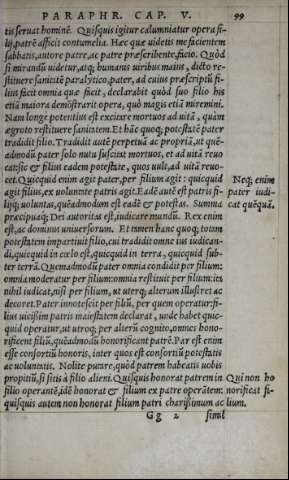 PARAPHR. CAP. V. 99
tis seruat hominē. Quisquis igitur calumniatur opera fi-
lij, patrē afficit contumelia. Hæc quæ uidetis me facientem
sabbatis, autore patre, ac patre præscribente, facio. Quòd
si mirandū uidetur, atq; humanis uiribus maius, dicto re-
stituere sanitatē paralytico, pater, ad cuius præscriptū fi-
lius facit omnia quæ facit, declarabit quòd suo filio his
etiā maiora demōstrarit opera, quò magis etiā miremini.
Nam longè potentius est excitare mortuos ad uitā, quàm
ægroto restituere sanitatem. Et hāc quoq; potestatē pater
tradidit filio. Tradidit autē perpetuā ac propriā, ut quē-
admodū pater solo nutu suscitat mortuos, et ad uitā reuo
cat: sic & filius eadem potestate, quos uult, ad uitā reuo-
cet. Quicquid enim agit pater, per filium agit: quicquid
agit filius, ex uoluntate patris agit. Eadē autē est patris fi-
lijq; uoluntas, quēadmodum est eadē & potestas. Summa
præcipuaq; Dei autoritas est, iudicare mundū. Rex enim
est, ac dominus uniuersorum. Et tamen hanc quoq; totam
potestatem impartiuit filio, cui tradidit omne ius iudican-
di, quicquid in cœlo est, quicquid in terra, quicquid sub-
ter terrā. Quemadmodū pater omnia condidit per filium:
omnia moderatur per filium: omnia restituit per filium: ita
nihil iudicat, nisi per filium, ut uterq; alterum illustret ac
decoret. Pater innotescit per filiū, per quem operatur: fi-
lius uicissim patris maiestatem declarat, unde habet quic-
quid operatur, ut utroq; per alterū cognito, omnes hono-
rificent filiū, quēadmodū honorificant patrē. Par est enim
esse consortiū honoris, inter quos est consortiū potestatis
ac uoluntatis. Nolite putare, quòd patrem habeatis uobis
propitiū, si sitis à filio alieni. Quisquis honorat patrem in
filio operantē, idē honorat & filium ex patre operātem:
quisquis autem non honorat filium patri charissimum ac
Gg 2 simil
Neq; enim
pater iudi-
cat quēquā.
Qui non ho
norificat fi-
lium.